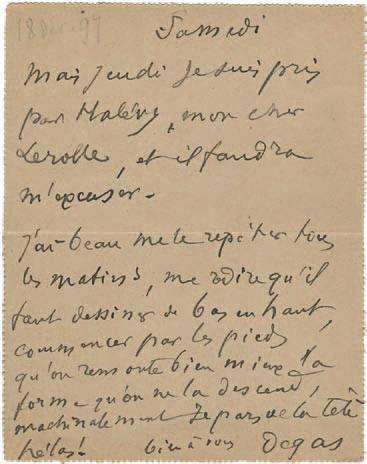 18 Déc. 97
Samedi
Mais jeudi je suis pris
par Halévy, mon cher
Lerolle, et il faudra
m'excuser.
J'ai beau me le repéter tous
les matins, me redire qu'il
faut dessiner de bas en haut,
commencer par les pieds,
qu'on remonte bien mieux la
forme qu'on ne la descend,
machinalement je pars de la tête
hélas! bien à vous Degas